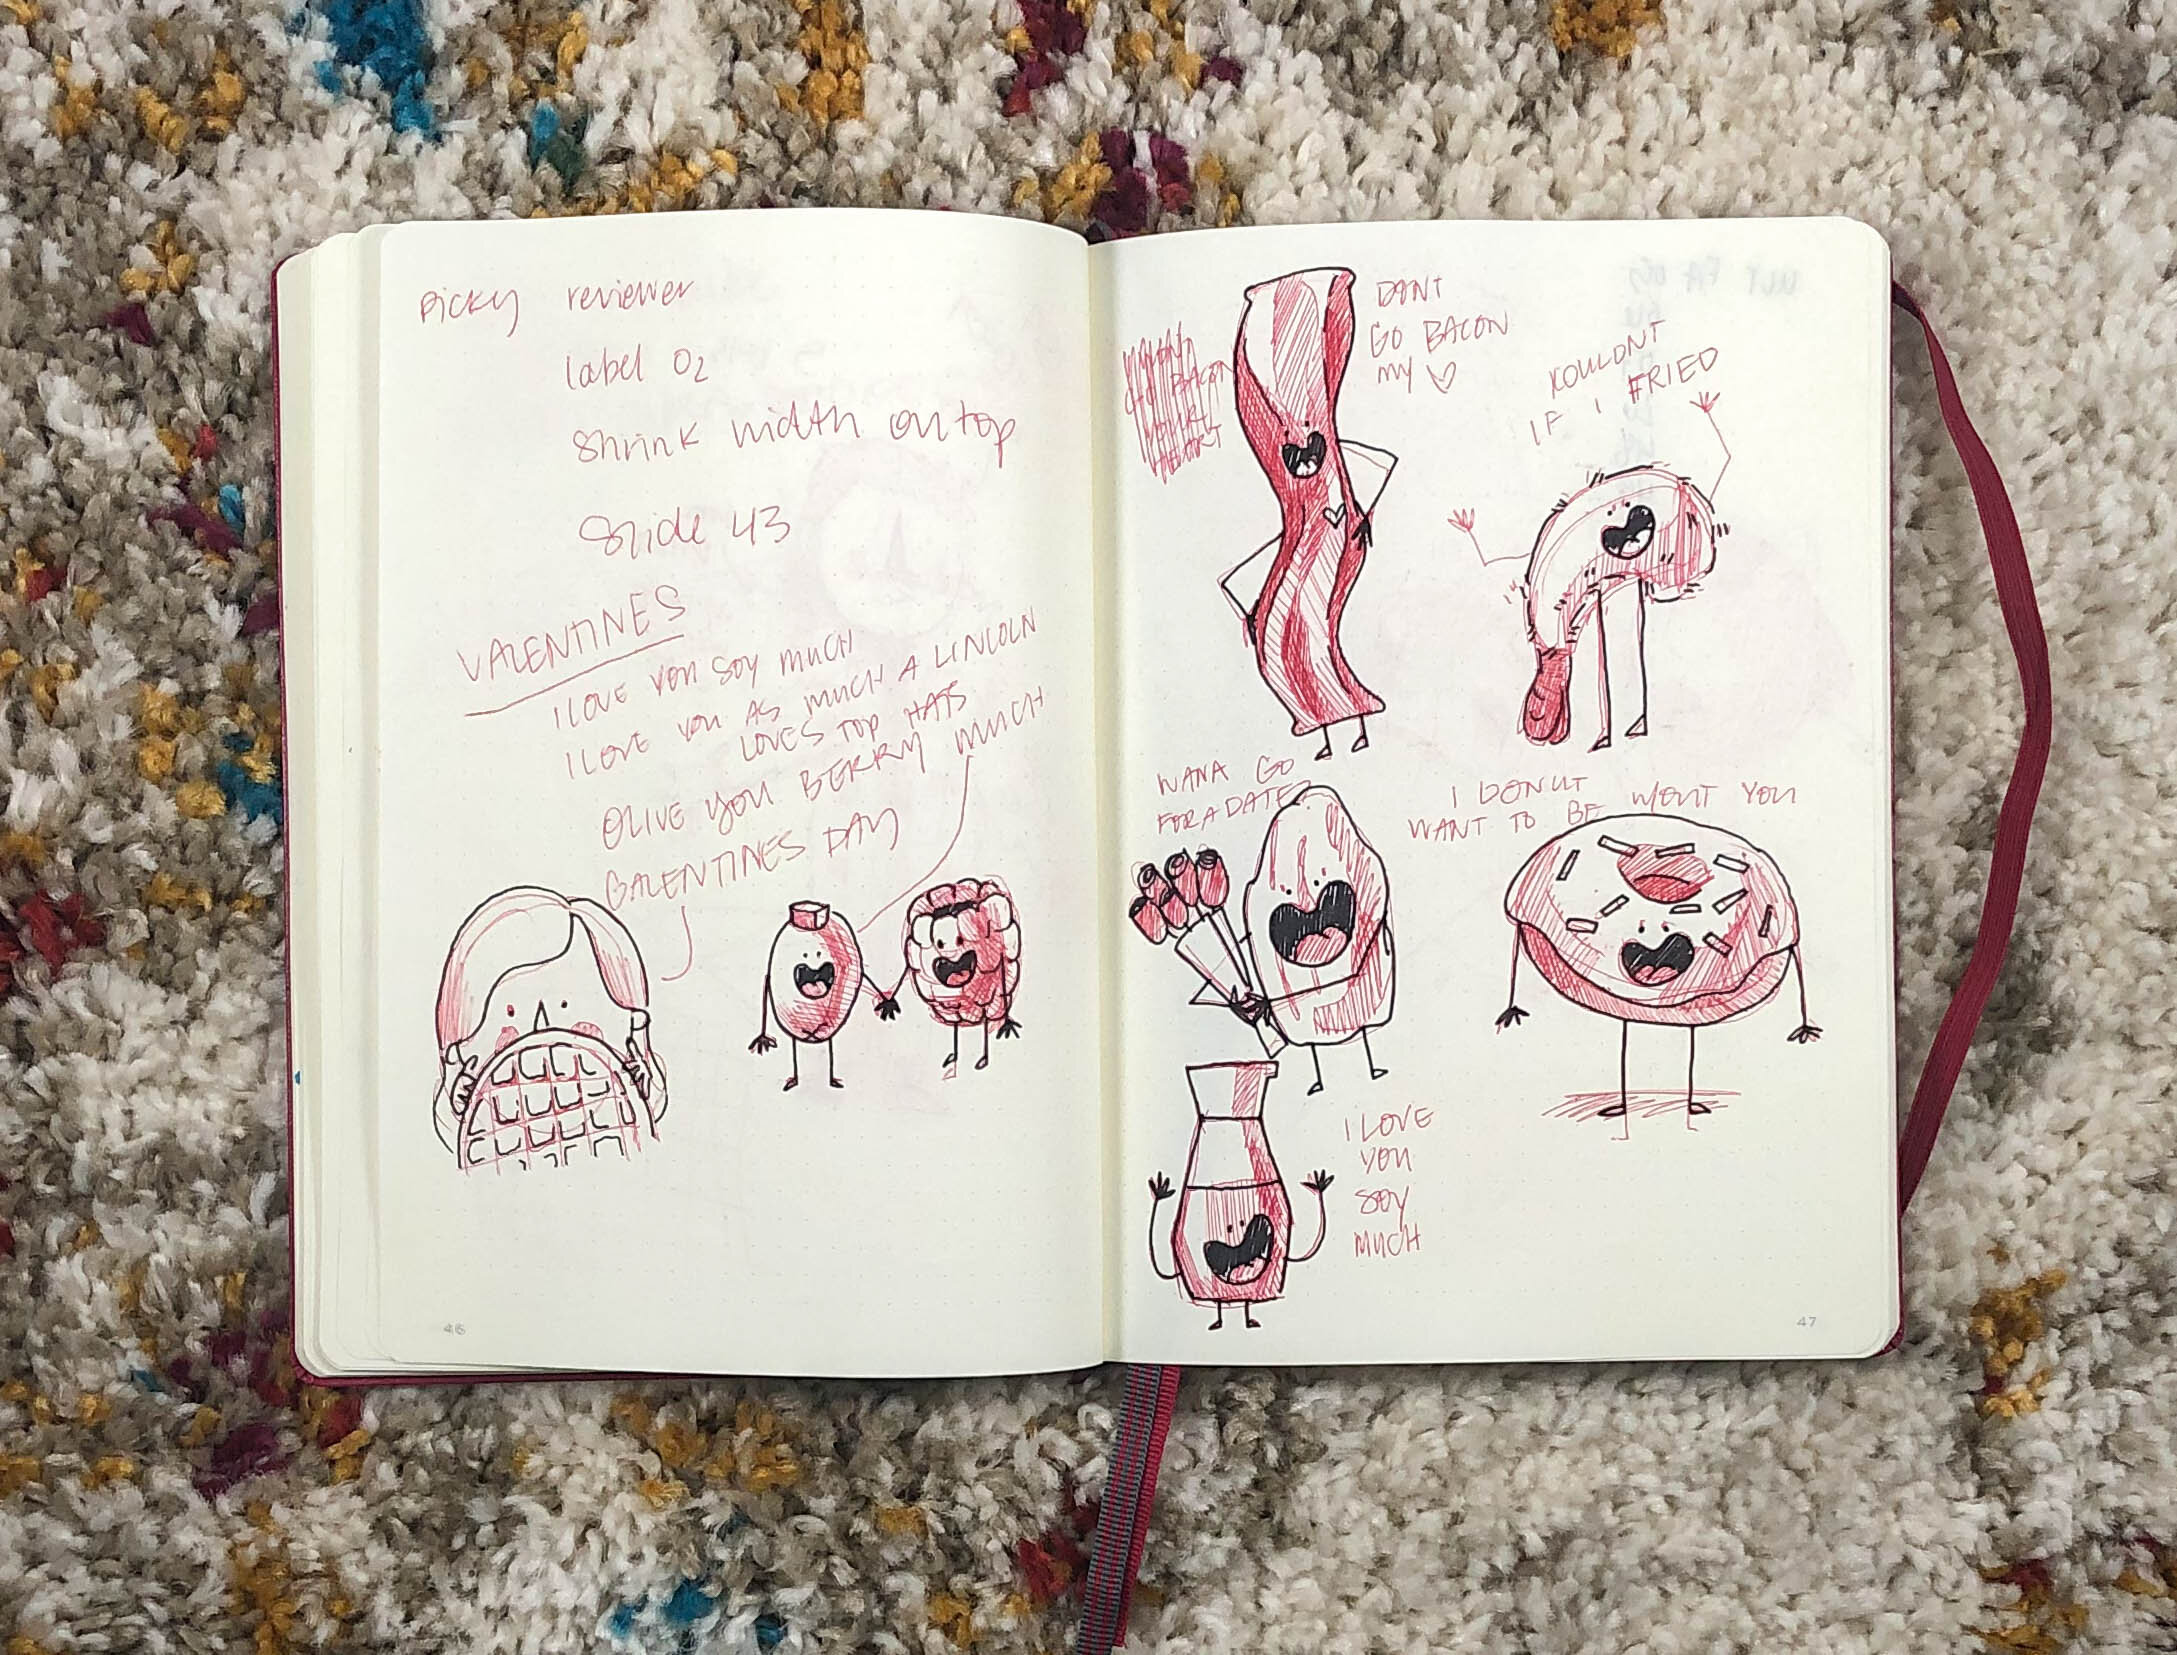 Picky reviewer
label O2
Shrink width on top
Slide 43
VALENTINES
I LOVE YOU SOY MUCH
I LOVE YOU AS MUCH A LINCOLN
LOVES TOP HATS
OLIVE YOU BERRY MUCH
GALENTINES DAY
46
DONT
GO BACON
MY
KOULDNT
IF I FRIED
WANA GO
FOR A DATE?
I DONUT
WANT TO BE WOUT YOU
I LOVE
YOU
SOY
MUCH
47